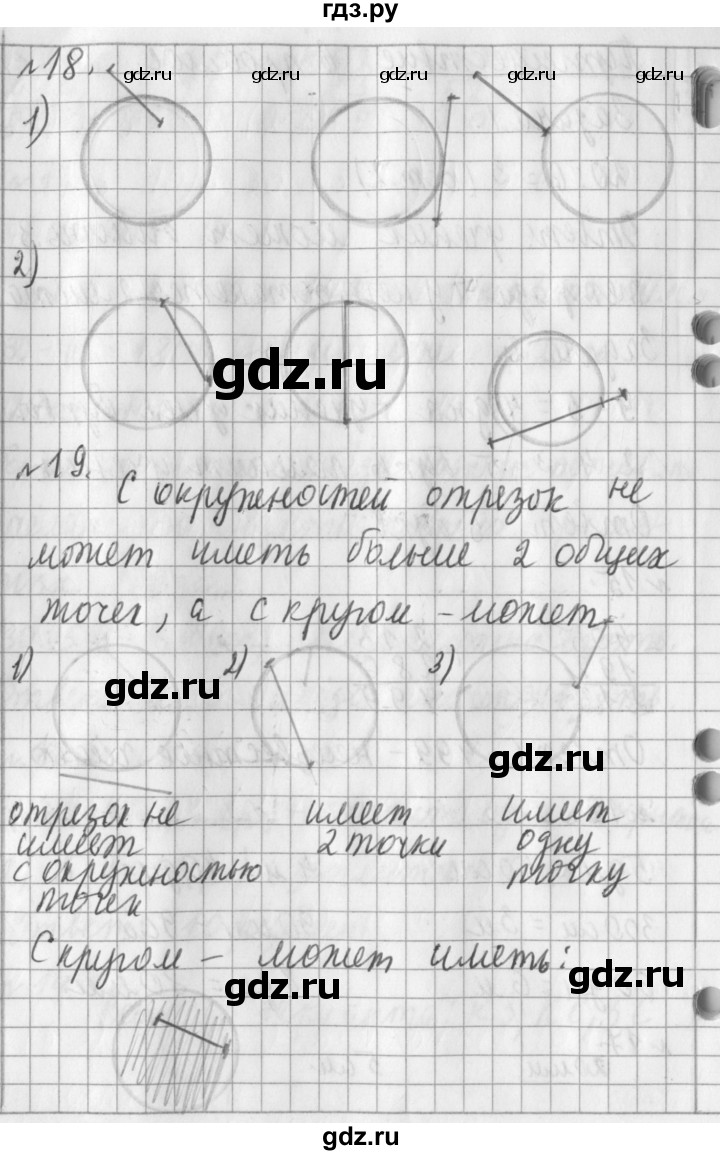 гдз.ру
№18.
gdz.ru gdz.ru gdz.ru gdz.ru
1)
2)
gdz.ru
№19.
С окружностей отрезок не
может иметь больше 2 общих
точек, а с кругом - может
1) 2) 3)
gdz.ru
gdz.ru
отрезок не имеет имеет
имеет 2 точки одну
с окружностью точку
точек
С кругом - может иметь:
gdz.ru gdz.ru
gdz.ru